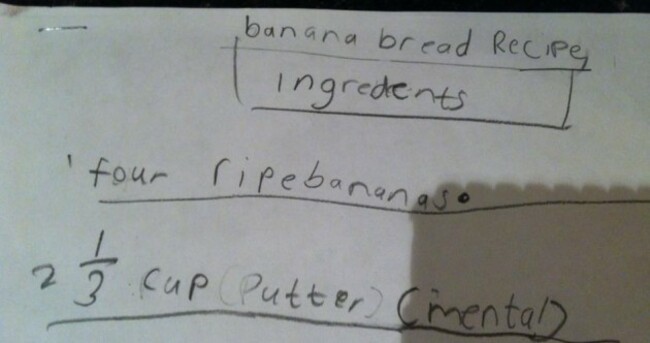 banana bread Recipe
ingredents
1 four ripebananas.
2 1/3 cup (Putter) (mental)